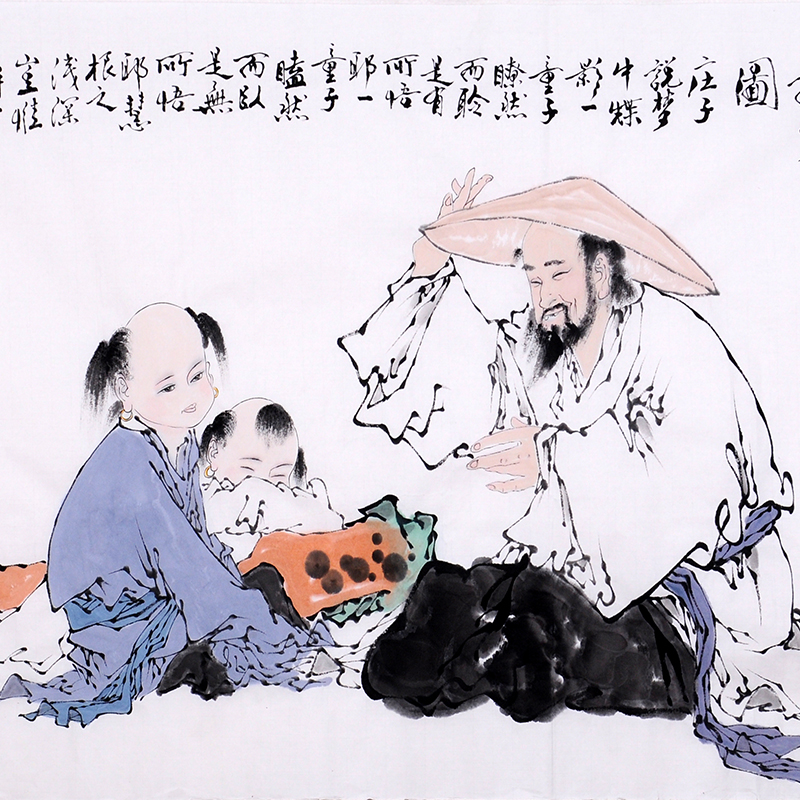 圖
庄子
説梦
中蝶
影一
童子
瞭然
而聆
是有
所悟
耶一
童子
瞌然
而臥
是無
所悟
耶慧
根之
浅深
豈惟